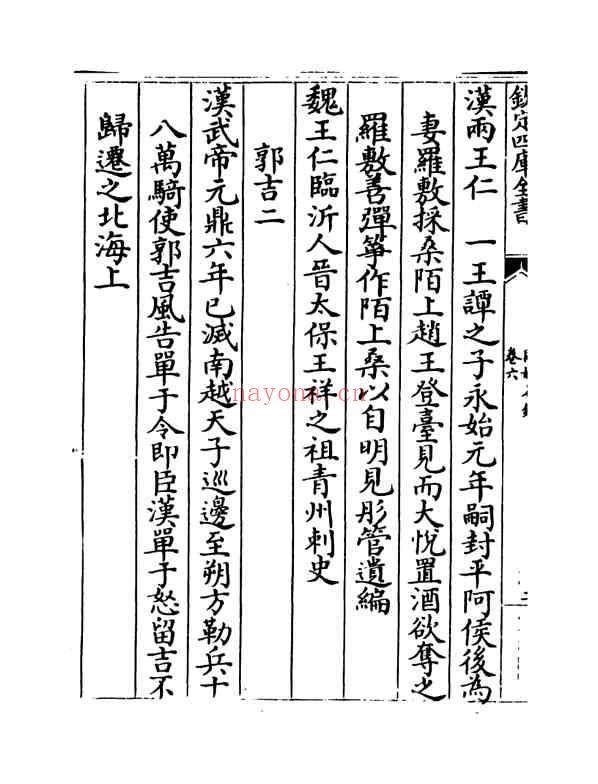 欽定四庫全書
卷六
漢兩王仁　一王譚之子永始元年嗣封平阿侯後為
妻羅敷採桑陌上趙王登臺見而大悅置酒欲奪之
羅敷善彈箏作陌上桑以自明見彤管遺編
魏王仁臨沂人晉太保王祥之祖青州刺史
郭吉二
漢武帝元鼎六年已滅南越天子巡邊至朔方勒兵十
八萬騎使郭吉風告單于令即臣漢單于怒留吉不
歸遷之北海上
nayona.cn